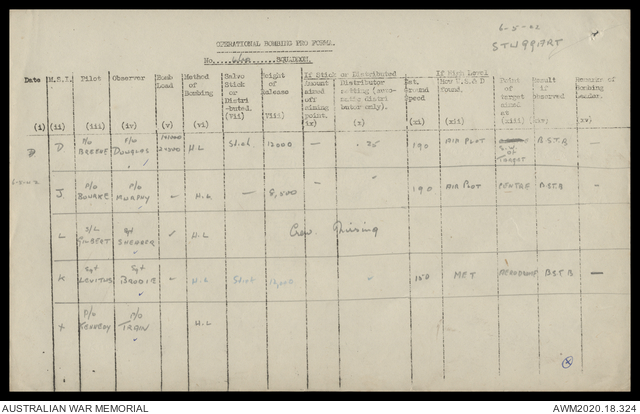 6-5-42
STUGGART
OPERATIONAL BOMBING PRO FORMA.
No. SQUADRON.
Date M.S.I. Pilot Observer Bomb Load Method of Bombing Salvo Stick or Distri-buted. Height of Release If Stick or Distributed If High Level Point of target aimed at Result if observed Remarks of Bombing Leader.
Amount aimed off aiming point. Distributor setting (auto-matic distri-butor only). Est. Ground Speed How W.V. & D found.
(i) (ii) (iii) (iv) (v) (vi) (vii) viii) ix) (x) (xi) (xii) (xiii) (xiv) (xv)
D D P/O BREENE P/O DOUGLAS H.L Stick 12000 - .25 190 AIR PLOT S.W. of Target B.S.T.B -
J. P/O BOURKE P/O MURPHY - H.L - 8,000 - - 190 AIR PLOT CENTRE B.S.T.B -
L S/L GILBERT Sgt H.L Crew Missing
K Sgt LEVITUS Sgt BRODIE - H.L Stick 12,000 150 MET AERODROME B.S.T.B -
X P/O KENNEDY P/O TRAIN H.L
X
AUSTRALIAN WAR MEMORIAL
AWM2020.18.324